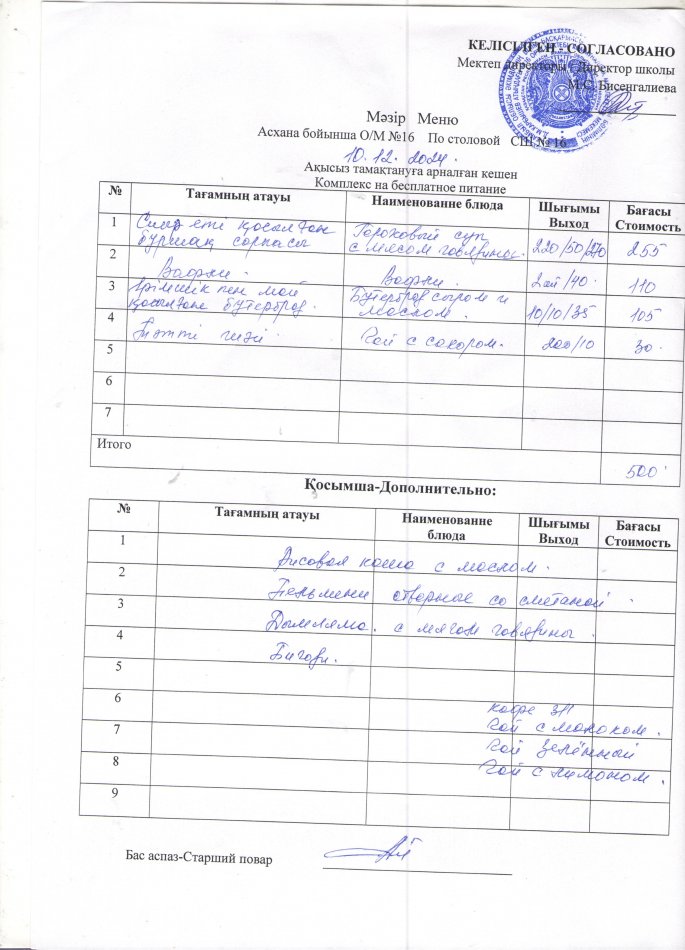 КЕЛІСІЛГЕН - СОГЛАСОВАНО
Мектеп директоры - Директор школы
М.С. Бисенгалиева
Мәзір Меню
Асхана бойынша О/М №16 По столовой СШ № 16
10.12.2024.
Ақысыз тамақтануға арналған кешен
Комплекс на бесплатное питание
№ Тағамның атауы Наименованне блюда Шығымы Выход Бағасы Стоимость
1 Сиыр еті қосылған бұршақ сорпасы Гороховый суп с мясом говядины. 220/50/270 255
2 Вафли. Вафли. 2 шт/40. 110
3 Ірімшік пен май қосылған бутерброд. Бутерброд сыром и маслом. 10/10/35 105
4 Тәтті шәй. Чай с сахаром. 200/10 30.
5
6
7
Итого
500
Қосымша-Дополнительно:
№ Тағамның атауы Наименованне блюда Шығымы Выход Бағасы Стоимость
1 Рисовая каша с маслом.
2 Пельмени отварные со сметаной.
3 Дымляма. с мясом говядины.
4 Бигоди.
5
6 кофе 3п
7 Чай с молоком.
8 Чай зелённый
9 Чай с лимоном.
Бас аспаз-Старший повар